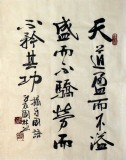 天道盈而不溢
盛而不驕勞而
不矜其功